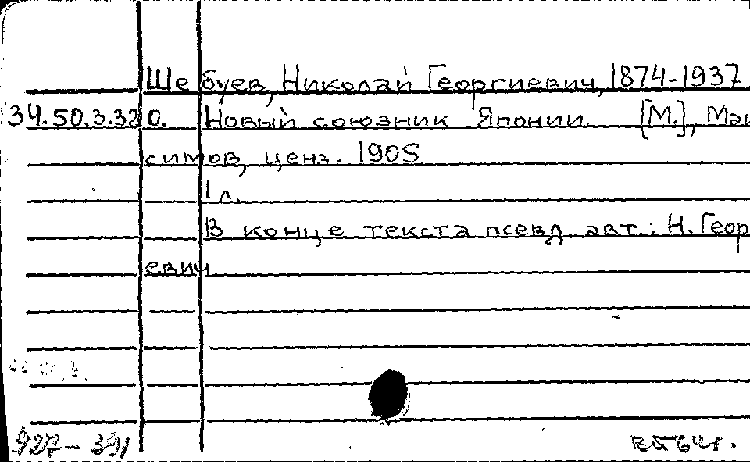 Шебуев, Николай Георгиевич, 1874-1937
34.50.3.320. Новый союзник Японии. [М.], Мак
симов, ценз. 1905
1 л.
В конце текста псевд. авт.: Н. Геор
евич
927-391